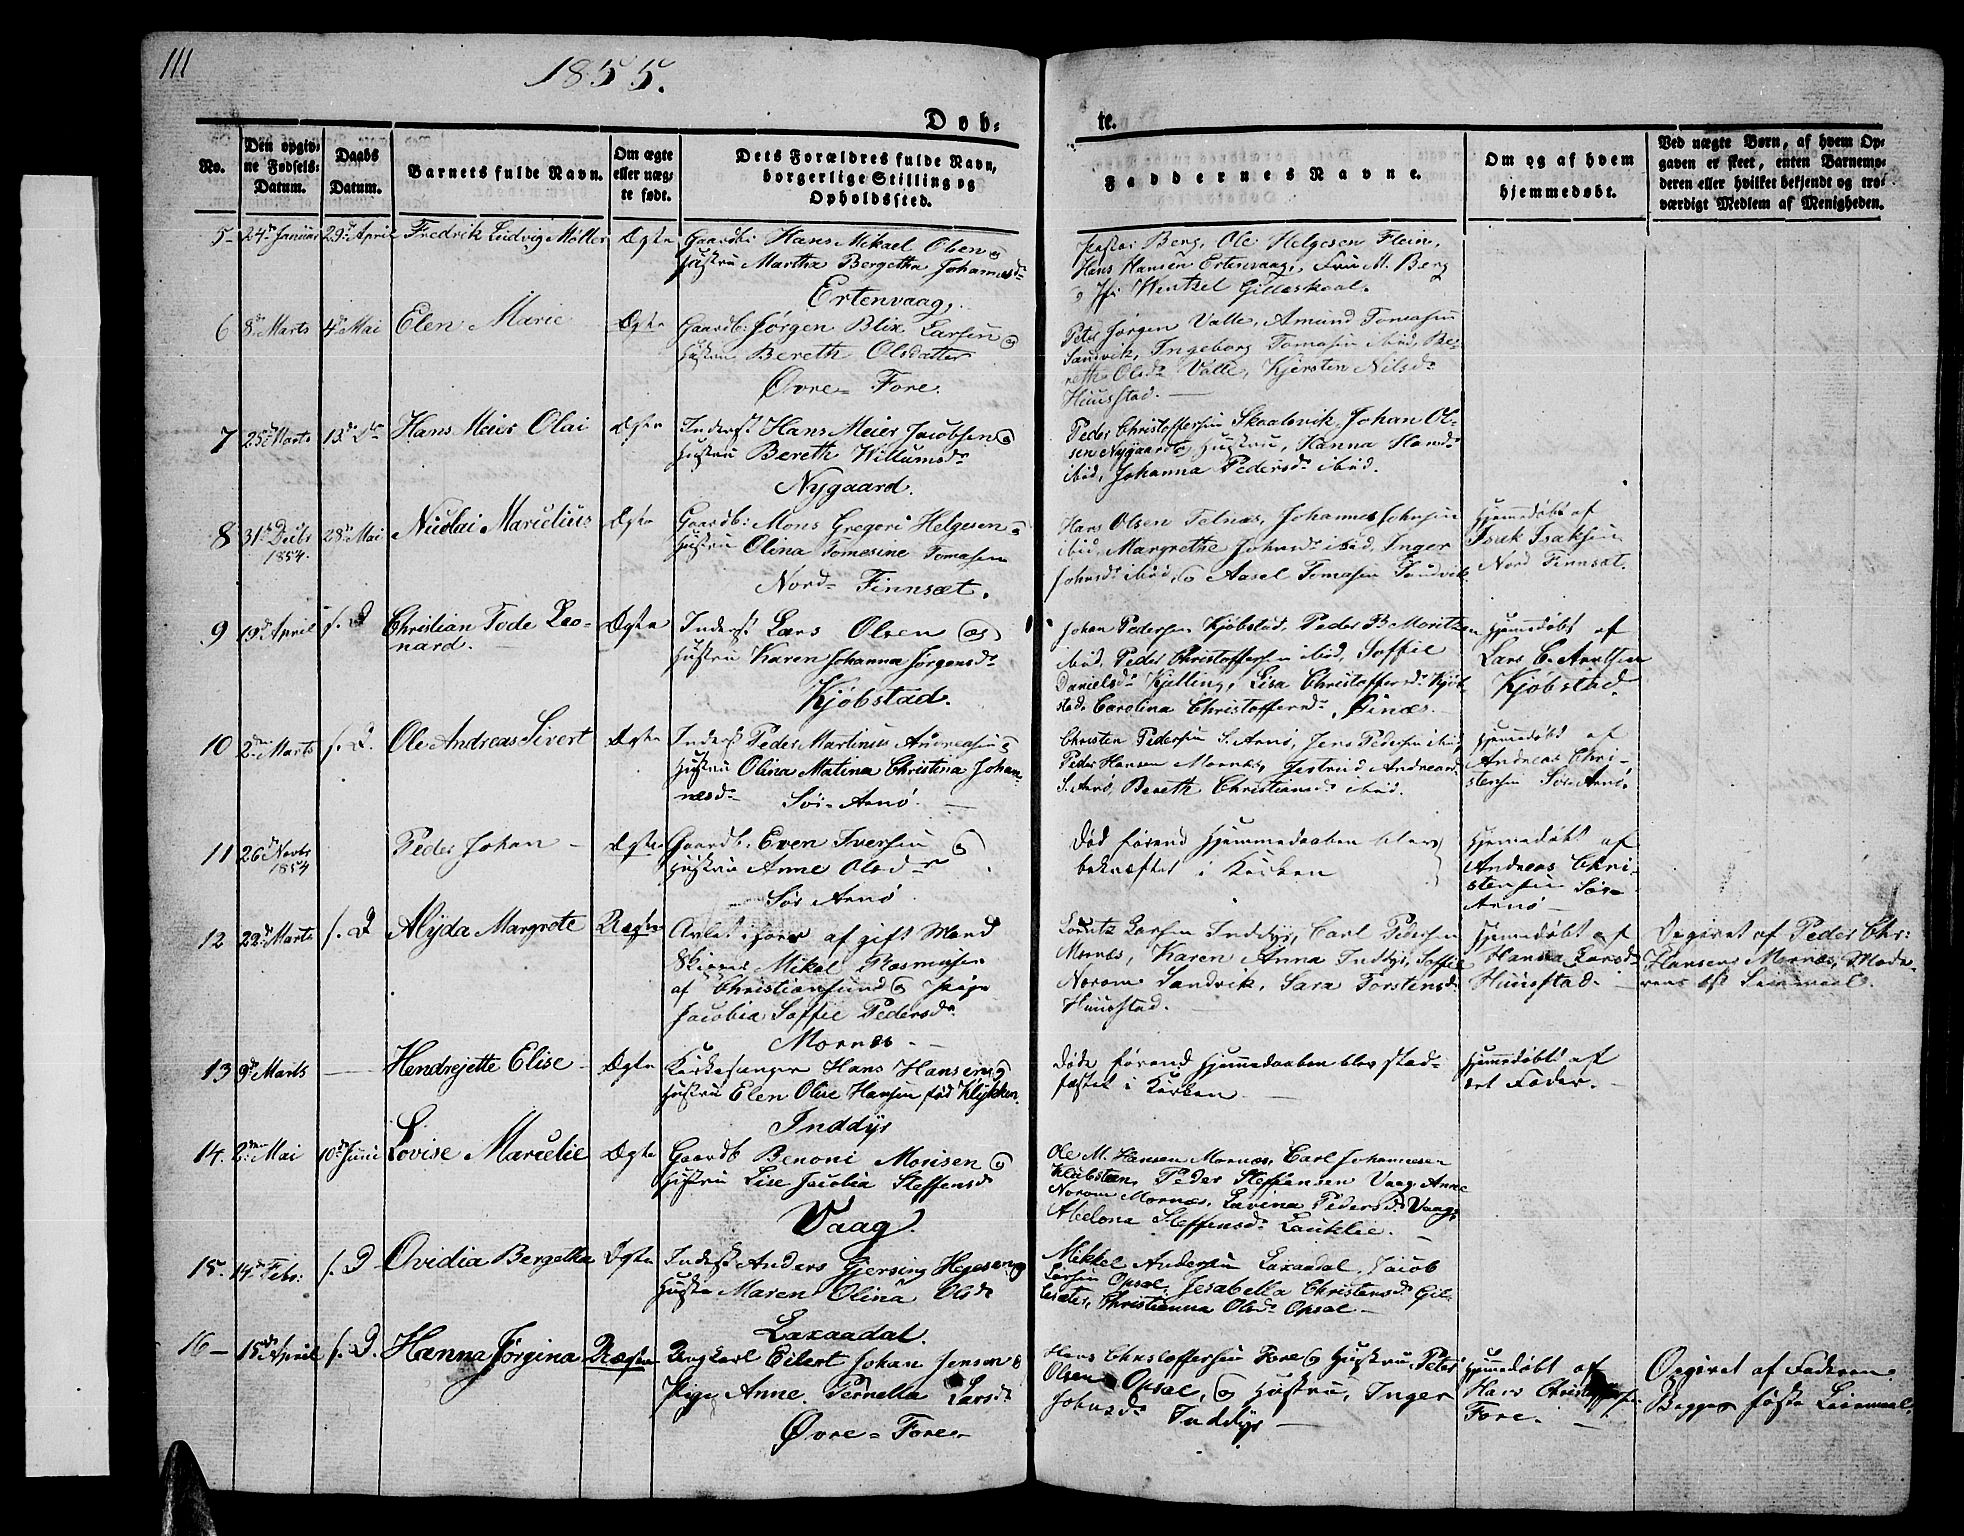 111
1855.
Døb-
te.
No.
Den opgiv-
ne Fødsels-
Datum.
Daabs
Datum.
Barnets fulde Navn.
Om ægte
eller uæg-
te født.
Dets Forældres fulde Navn,
borgerlige Stilling og
Opholdssted.
Faddernes Navne.
Om og af hvem
hjemmedøbt.
Ved uægte Børn, af hvem Op-
gaven er skeet, enten Barnemo-
deren eller hvilket bekjendt og tro-
værdigt Medlem af Menigheden.
5 24de Januar 29de April Fredrik Ludvig Møller Ægte Gaardb: Hans Mikael Olsen og
Hustru Martha Bergetha Johannesdr
Ertenvaag.
Pastor Berg, Ole Helgesen Flein,
Hans Hansen Ertenvaag, Fru M. Berg
og Jfr Wentzel Gildeskaal.
6 8de Marts 4de Mai Elen Marie Ægte Gaardb: Jørgen Blix Larsen og
Hustru Bereth Olsdatter
Øvre Fore
Peter Jørgen Valle, Amund Tomasen
Sandvik, Ingeborg Tomasen ibid, Be-
reth Olsdr Valle, Kjersten Nilsdr
Huustad.
7 25de Marts 13de Do Hans Meier Olai Ægte Inderst Hans Meier Jacobsen og
Hustru Bereth Willumsdr
Nygaard.
Peder Christoffersen Skaalsvik, Johan Ol-
sen Nygaard og Hustru, Hanna Hansdr
ibid, Johanna Pedersdr ibid.
8 31te Decbr 1854. 28de Mai Nicolai Marcelius Ægte Gaardb: Mons Gregori Helgesen og
Hustru Olina Tomesine Tomasen
Nord Finnsæt.
Hans Olsen Telnæs, Johannes Johnsen
ibid, Margrethe Johnsdr ibid, Inger
Johnsdr ibid, og Aasel Tomasen Sandvik
Hjemmedøbt af
Isak Isaksen
Nord Finnsæt.
9 19de April s. D Christian Tode Leo-
nard.
Ægte Inderst Lars Olsen og
Hustru Karen Johanna Jørgensdr
Kjøbstad.
Johan Pedersen Kjøbstad, Peder B Moritzen
ibid, Peder Christoffersen ibid, Soffie
Danielsdr Kjelling, Lisa Christoffersdr Kjøb-
stad, Carolina Christoffersdr Finæs.
Hjemmedøbt af
Lars C. Arntsen
Kjøbstad.
10 2den Marts s. D. Ole Andreas Sivert Ægte Inderst Peder Martinus Andreasen og
Hustru Olina Matina Christina Johan-
nesdr Sør-Arnø.
Christen Pedersen S. Arnø, Jens Pedersen ibid,
Peder Hansen Mornæs, Jestrud Andreasdr
S. Arnø, Bereth Christiansdr ibid.
Hjemmedøbt af
Andreas Chri-
stensen Sør-Arnø.
11 26de Novbr 1854 Peder Johan Ægte Gaardb: Even Iversen og
Hustru Anne Olsdr
Sør Arnø
Død førend Hjemmedaaben blev
bekræftet i Kirken
Hjemmedøbt af
Andreas Chri-
stensen Sør-
Arnø
12 22de Marts s. D Alyda Margrete Uægte Avlet i Hoer af gift Mand
Skipper Mikal Rasmusen
af Christiansund og Pige
Jacobia Soffie Pedersdr
Mornæs.
Lorntz Larsen Inddyr, Carl Pedersen
Mornæs, Karen Anna Inddyr, Soffie
Norom Sandvik, Sara Torstensdr
Huustad.
Hjemmedøbt af
Hanna Larsdr
Huustad.
Opgivet af Peder Chr:
Hansen Mornæs, Mode-
rens 1ste Leiermaal.
13 9de Marts Hendrejette Elise Ægte Kirkesanger Hans Hansen og
Hustru Elen Olive Hansen, fød Klykken.
Inddyr
Døde førend Hjemmedaaben blev stad-
fæstet i Kirken.
Hjemmedøbt af
det Fader.
14. 2den Mai 10de Juni Lovise Marcelie Ægte Gaardb Benoni Morisen og
Hustru Lise Jacobia Steffensdr
Vaag.
Ole M. Hansen Mornæs, Carl Johannesen
Klubsteen, Peder Steffensen Vaag, Anne
Norom Mornæs, Lavina Pedersdr Vaag,
Abelona Steffensdr Lauklie.
15. 14de Febr: s. D Ovidia Bergetha Ægte Inderst Anders Gjersing Hegesen og
Hustru Maren Olina Olsdr
Laxaadal.
Mikkel Andersen Laxaadal, Jacob
Larsen Opsal, Jesabella Christensdr Gil-
lesæter, Christianna Olsdr Opsal
16 15de April s. D. Hanna Jørgina Uægte Ungkarl Eilert Johan Jensen og
Pige Anne Pernella Larsdr
Øvre Fore
Hans Christoffersen Fore og Hustru, Peter
Olsen Opsal, og Hustru, Inger
Johnsdr Inddyr
Hjemmedøbt af
Hans Christoffersen
Fore.
Opgivet af Faderen
Begges første Leiermaal.